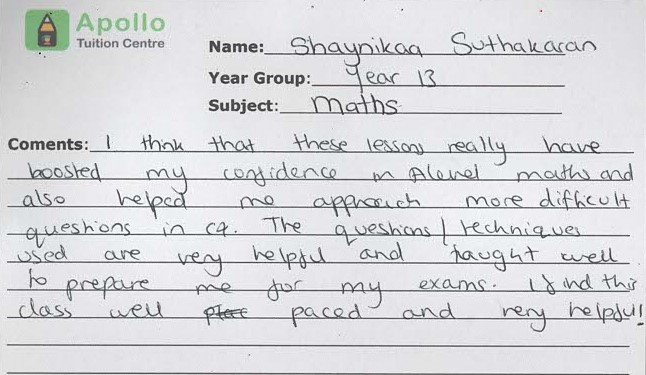 Apollo
Tuition Centre
Name: Shaynikaa Suthakaran
Year Group: Year 13
Subject: Maths
Coments: I think that these lessons really have
boosted my confidence in Alevel maths and
also helped me approach more difficult
questions in C4. The questions/techniques
used are very helpful and taught well
to prepare me for my exams. I find this
class well paced and very helpful!